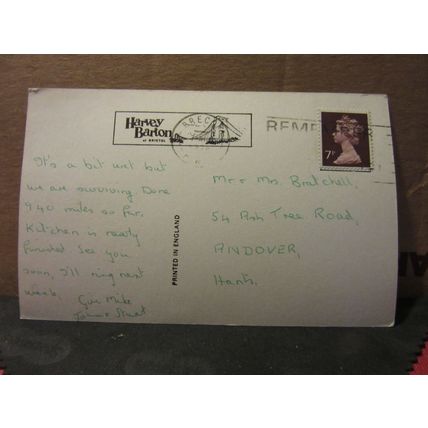 Harvey
Barton
of BRISTOL
BRECON
REME
7P
It's a bit wet but
we are surviving Done
940 miles so far.
Kitchen is nearly
finished See you
soon, I'll ring next
week.
Mike
PRINTED IN ENGLAND
Mr + Mrs. Bratchell,
54 Ash Tree Road,
ANDOVER,
Hants.